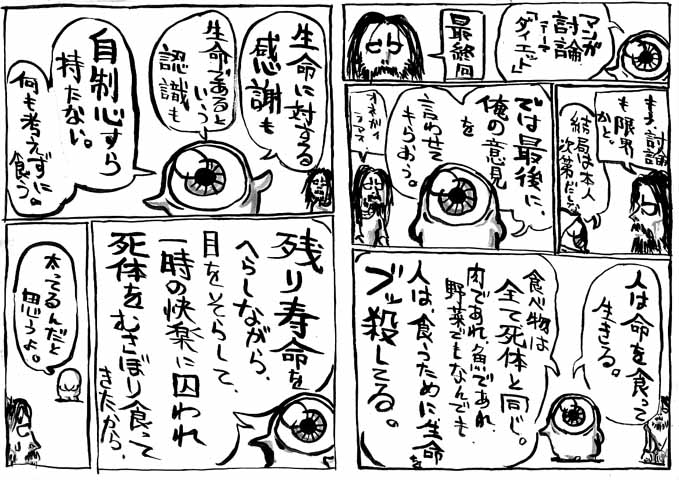 マンガ
討論
テーマ
「ダイエット」
最終回
もう討論
も限界
かと。
結局は本人
次第だしな
では最後に、
俺の意見
を
言わせて
もらおう。
オネガイ
シマス
人は命を食って
生きる。
食べ物は
全て死体と同じ。
肉であれ、魚であれ、
野菜でもなんでも
人は食うために生命を
ブッ殺してる。
生命に対する
感謝も
生命であると
いう
認識も
自制心すら
持たない。
何も考えずに
食う。
残り寿命を
へらしながら、
目をそらして、
一時の快楽に囚われ
死体をむさぼり食って
きたから、
太ってるんだと
思うよ。